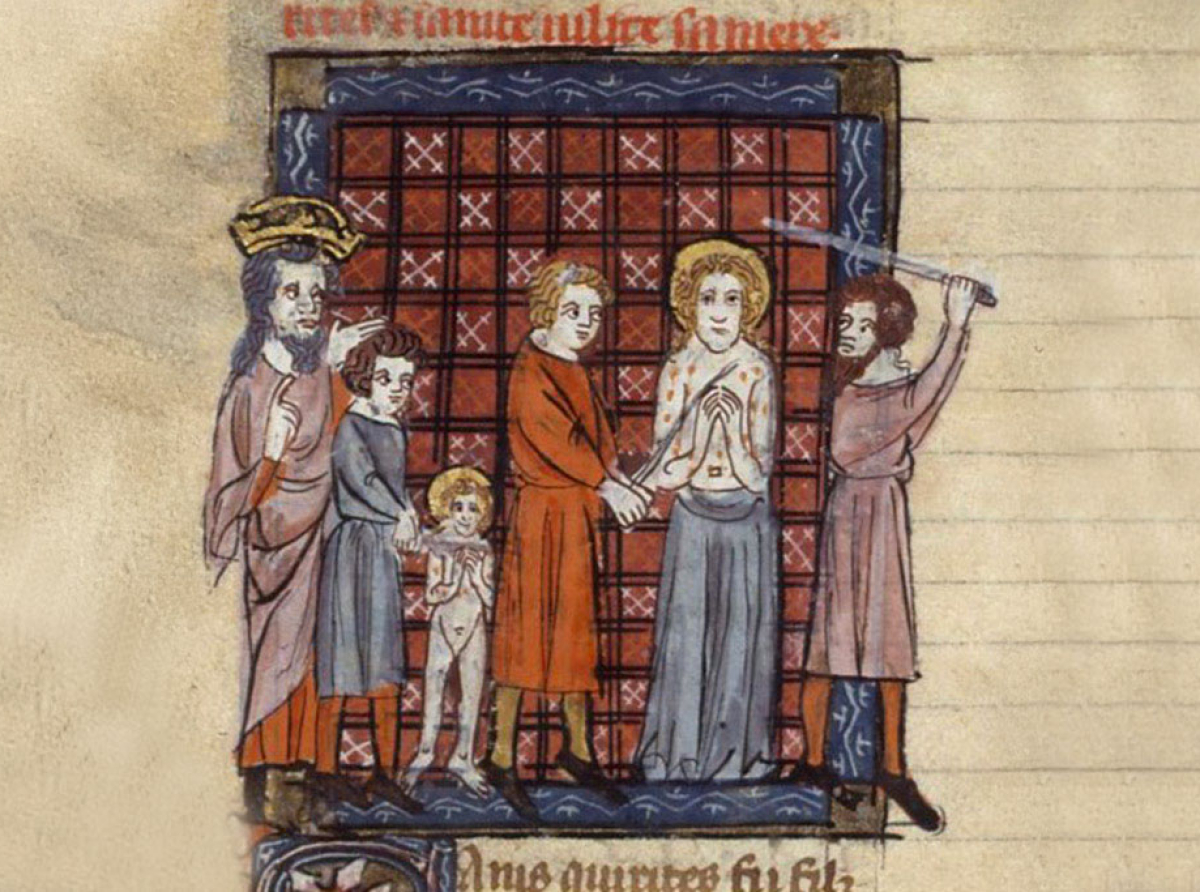 rites ⁊ sainte iulite sa mere.
Anis quirites fu filz